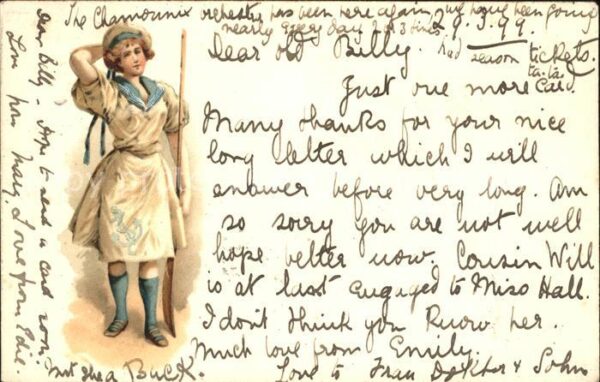 The Chamounix orchester has been here again, we have been going
nearly every day 2 or 3 times.
had season tickets.
ta-ta
29.3.99.
Dear old Billy.
Just one more Card.
Many thanks for your nice
long letter which I will
answer before very long. Am
so sorry you are not well
hope better now. Cousin Will
is at last engaged to Miss Hall.
I don't think you know her.
Much love from Emily.
Love to Frau Doktor & Sohn
Dear Billy - Hope to send u card soon.
Love from Mary. Love from Edie.
not she a BUCK.